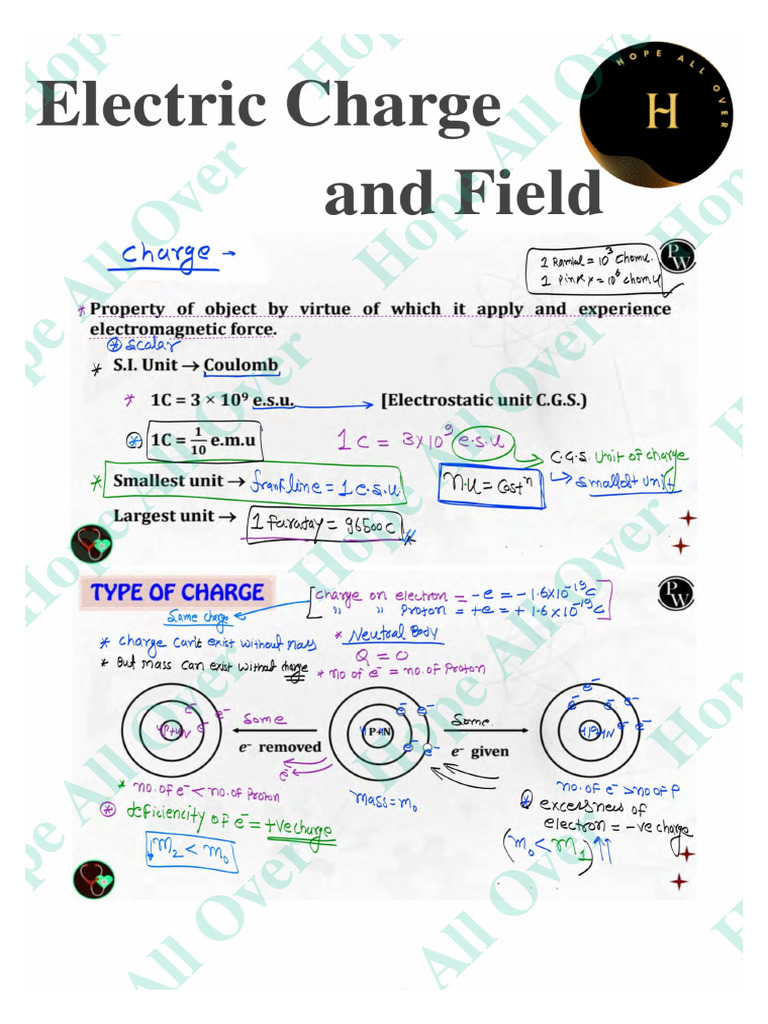 Electric Charge
and Field
HOPE ALL OVER
H
Charge →
1 Ramlal = 10³ chomu.
1 Pinky = 10⁶ chomu
PW
* Property of object by virtue of which it apply and experience
electromagnetic force.
* scalar
* S.I. Unit → Coulomb
* 1C = 3 × 10⁹ e.s.u. → [Electrostatic unit C.G.S.)
* 1C = 1/10 e.m.u
1C = 3×10⁹ e.s.u
→ C.G.S. unit of charge
→ smallest unit
* Smallest unit → frankline = 1 e.s.u.
n.u = costⁿ
Largest unit → 1 faraday = 96500c *
TYPE OF CHARGE
[charge on electron = -e = -1.6×10⁻¹⁹c
" " Proton = +e = +1.6×10⁻¹⁹c]
PW
Same charge
* charge can't exist without mass
* But mass can exist without charge
* Neutral Body
Q = 0
* no of e⁻ = no. of Proton
e⁻ e⁻ e⁻
4P+4N
Some
e⁻ removed
e⁻
e⁻ e⁻
4P+4N
e⁻ e⁻
Some.
e⁻ given
e⁻ e⁻ e⁻ e⁻ e⁻ e⁻
4P+4N
* no. of e⁻ < no. of Proton
* deficiency of e⁻ = +ve charge
↓m₂ < m₀
mass = m₀
no. of e⁻ > no of P
* excessness of
electron = -ve charge
(m₀ < m₁)↑↑
Hope All Over